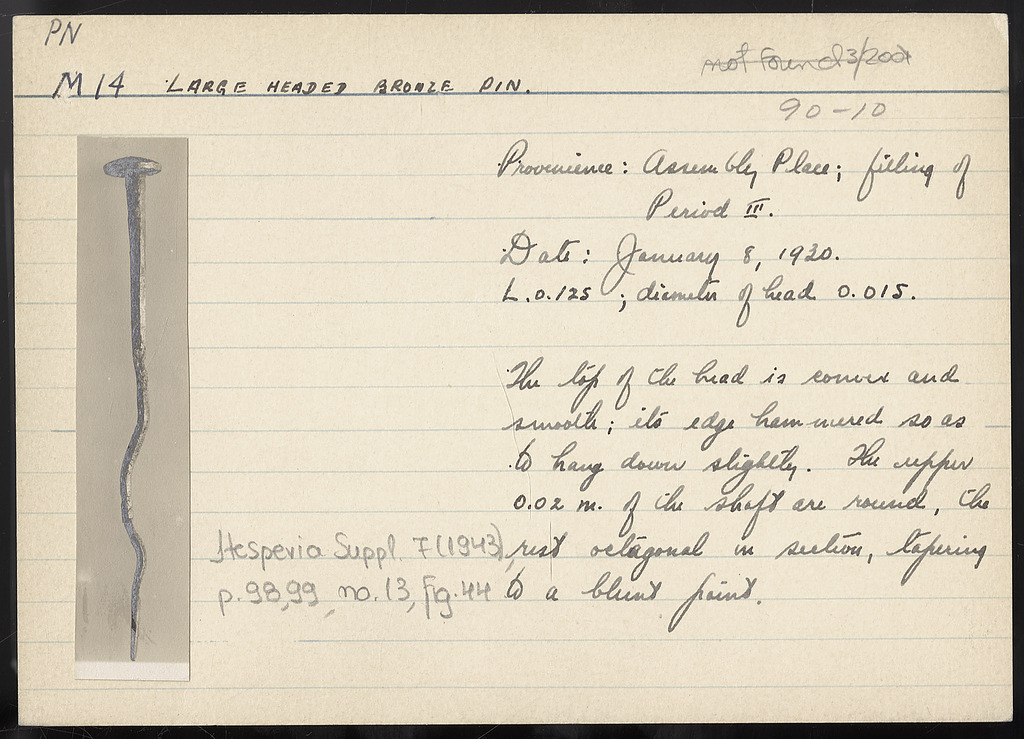 PN
not found 3/2001
M 14 LARGE HEADED BRONZE PIN.
90-10
Provenience: Assembly Place; filling of
Period III.
Date: January 8, 1930.
L. 0.125 ; diameter of head 0.015.
The top of the head is convex and
smooth; its edge hammered so as
to hang down slightly. The upper
0.02 m. of the shaft are round, the
rest octagonal in section, tapering
to a blunt point.
Hesperia Suppl. 7 (1943),
p. 98,99, no. 13, fig. 44